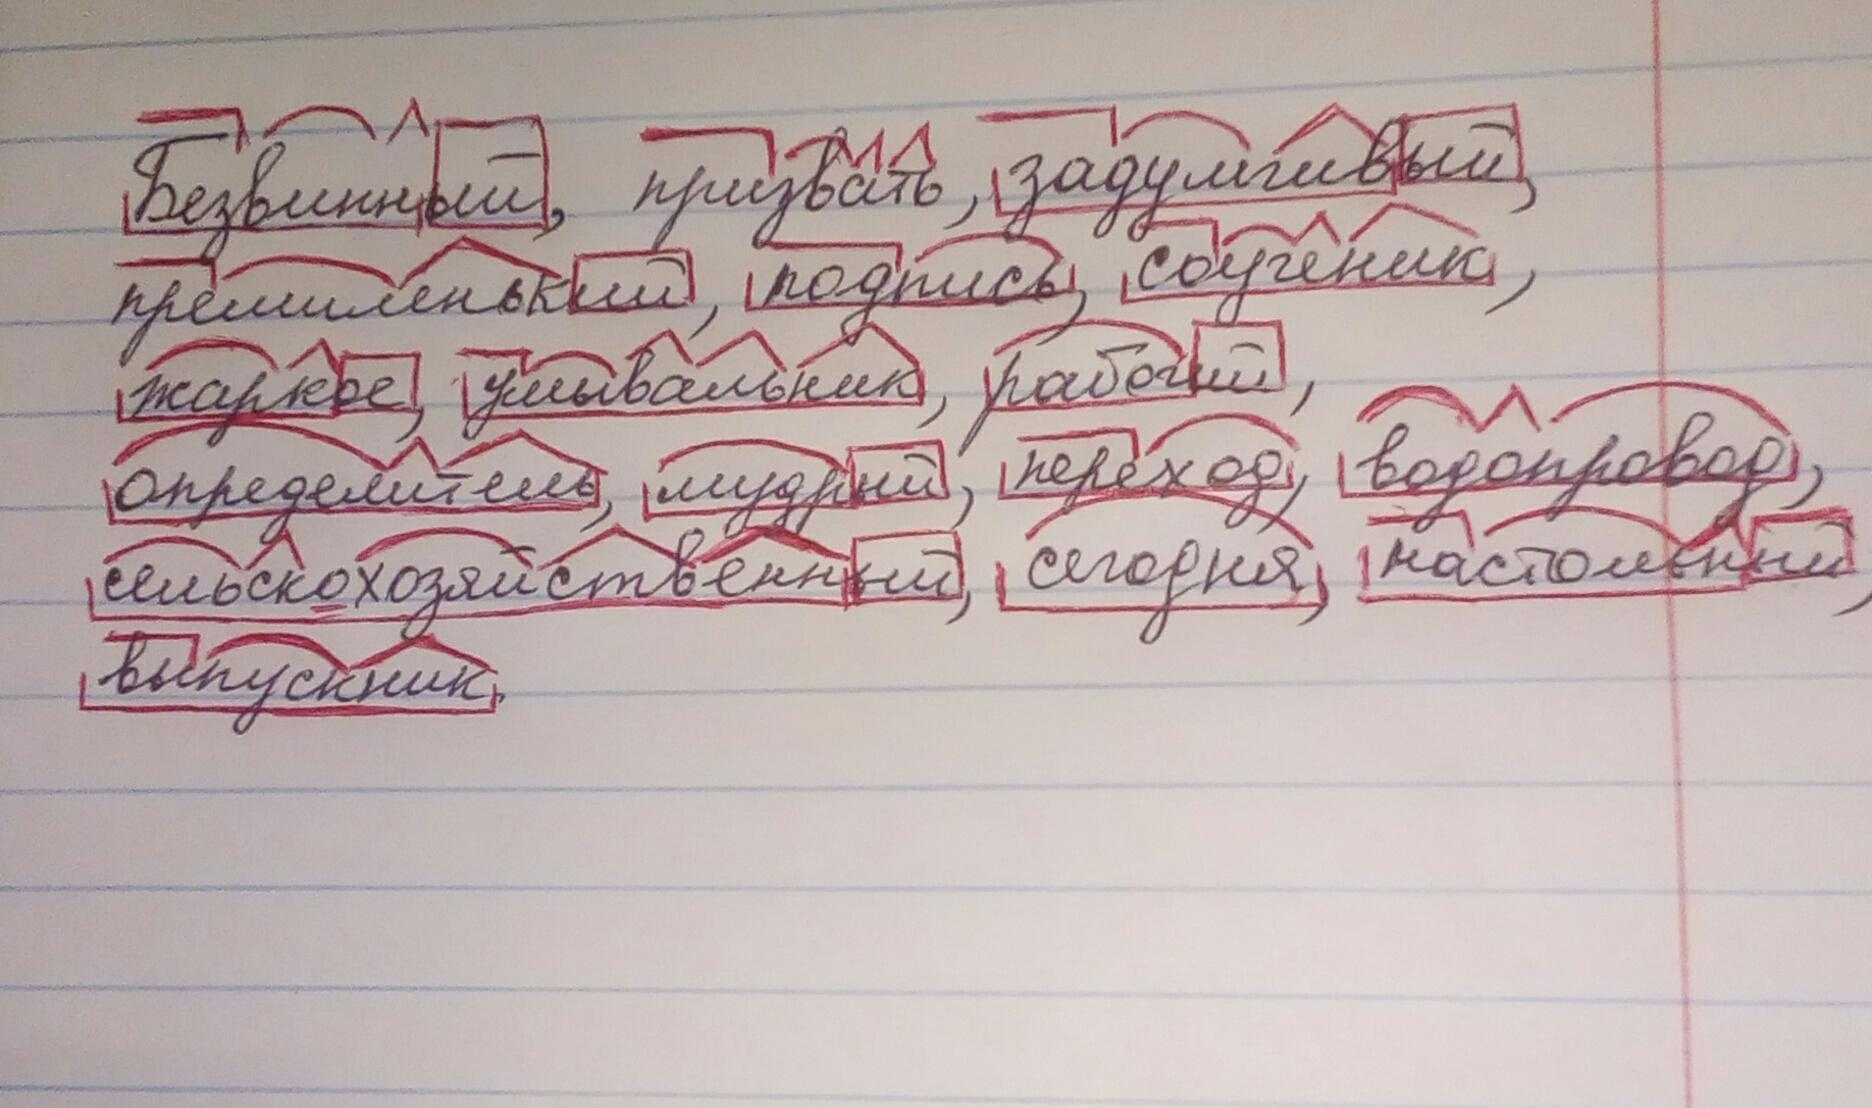 Безвинный, призвать, задумчивый,
премиленький, подпись, соученик,
жаркое, умывальник, рабочий,
определитель, мудрый, переход, водопровод,
сельскохозяйственный, сегодня, настольный,
выпускник.